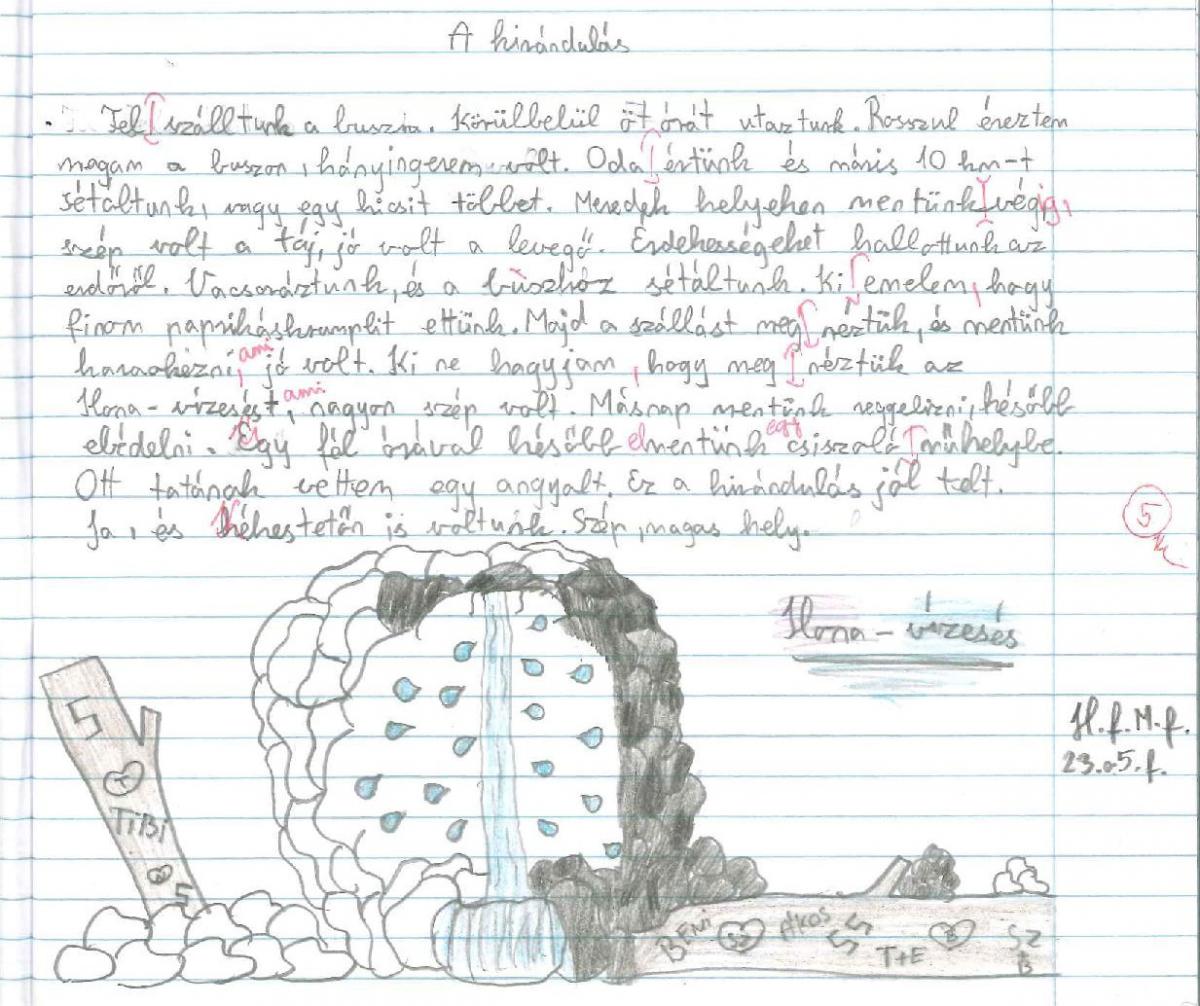 A kirándulás
Fel szálltunk a buszra. Körülbelül öt órát utaztunk. Rosszul éreztem
magam a buszon, hányingerem volt. Oda értünk és máris 10 km-t
sétáltunk, vagy egy kicsit többet. Meredek helyeken mentünk végig,
szép volt a táj, jó volt a levegő. Érdekességeket hallottunk az
erdőről. Vacsoráztunk, és a buszhoz sétáltunk. Ki emelem, hogy
finom paprikáskrumplit ettünk. Majd a szállást meg néztük, és mentünk
karaokézni, ami jó volt. Ki ne hagyjam, hogy meg néztük az
Ilona-vízesést, ami nagyon szép volt. Másnap mentünk reggelizni, később
ebédelni. Egy fél órával később elmentünk egy csiszoló műhelybe.
Ott tatának vettem egy angyalt. Ez a kirándulás jól telt.
Ja, és Kékestetőn is voltunk. Szép, magas hely.
5
Ilona-vízesés
H.f. M.f.
23.o5.f.
T
TiBi
BENi
Sz
ÁKOS
T+E
B
SZ
B